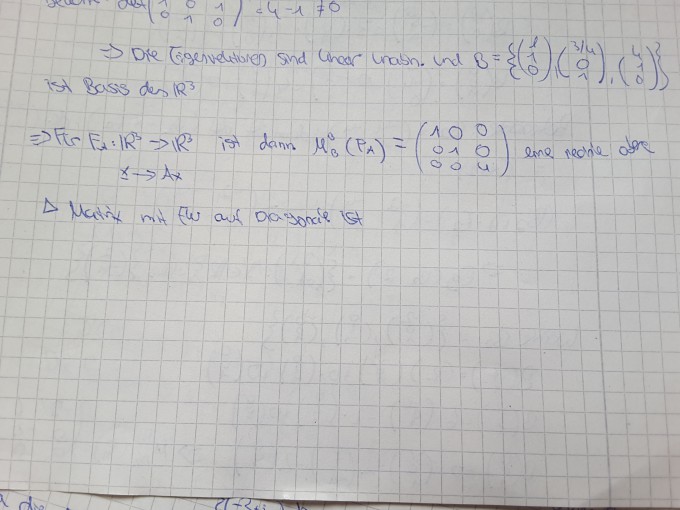 det ( 1 0 1 / 0 1 0 ) = 4 - 1 ≠ 0
⇒ Die (Eigenvektoren) sind linear unabh. und B = { ( 1 / 1 / 0 ) , ( 3/4 / 0 / 1 ) , ( 4 / 1 / 0 ) }
ist Basis des ℝ³
⇒ Für F_A : ℝ³ → ℝ³ ist dann M_B^B (F_A) = ( 1 0 0 / 0 1 0 / 0 0 4 ) eine rechte obere
x → Ax
Δ Matrix mit EW auf Diagonale ist